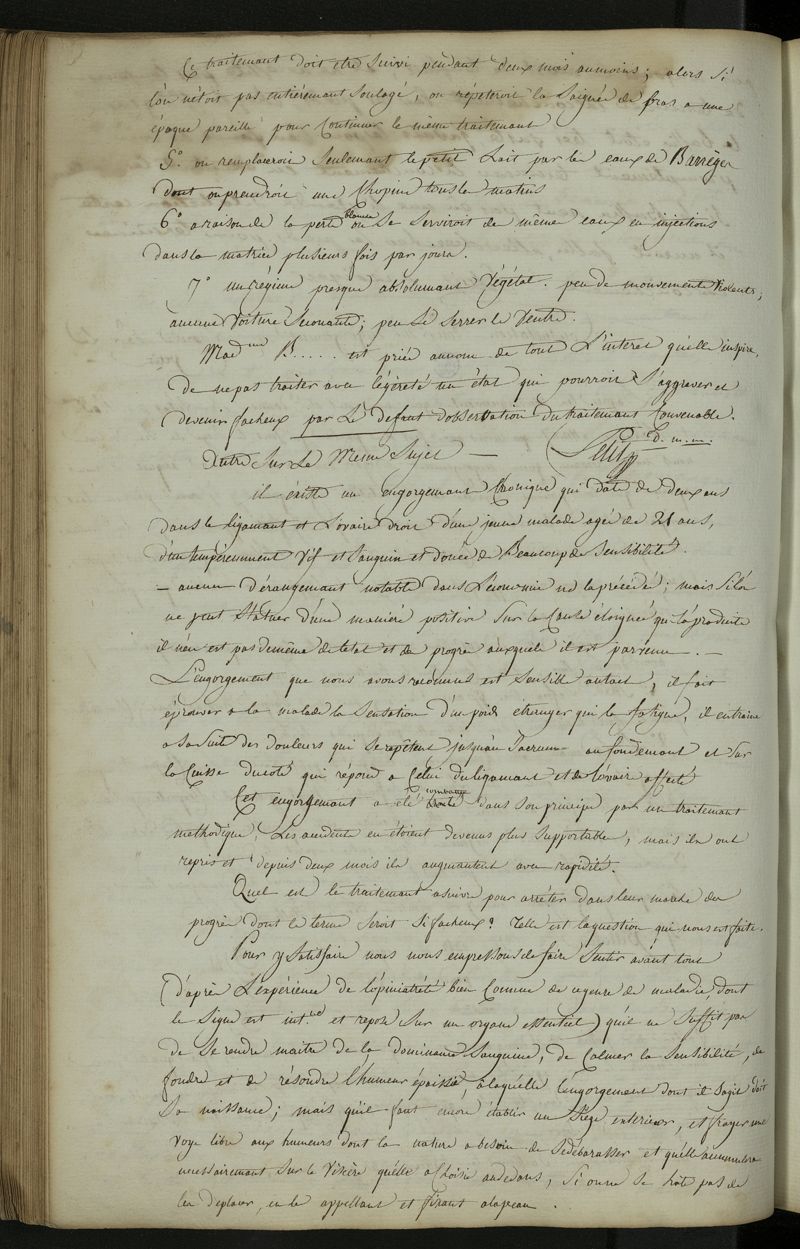 Ce traitement doit etre suivi pendant deux mois aumoins; alors si
l'on nétoit pas entiérement soulagé, on répeteroit la saignée de bras a une
époque pareille pour continuer le même traitement
5.° on remplaceroit seulement le petit lait par les eaux de Barrèges
dont on prendroit une chopine tous les matins
6° a raison de la perte blanche on se serviroit de même eaux en injections
dans la matrice plusieurs fois par jours.
7° un régime presque absolument végétal. peu de mouvements violents;
aucune voiture secouante; peu se serrer le ventre.
Mad.me B..... est priée au nom de tout l'interet qu'elle inspire,
de ne pas traiter avec légèreté un état qui pourroit s'aggraver et
devenir facheux par le defaut d'observation du traitement convenable.
Petit D. m. m.
Autre sur le meme sujet —
il existe un engorgement chronique qui date de deux ans
dans le ligament et l'ovaire droit d'une jeune malade agée de 21 ans,
d'un tempéremment vif et sanguin et douée de Beaucoup de sensibilité.
— aucun dérangement notable dans l'économie ne la précédé; mais si l'on
ne peut statuer d'une maniére positive sur la cause éloignée qui l'a produite
il n'en est pas de même de l'etat et des progrès auxquels il est parvenu. —
L'engorgement que nous avons reconnus est sensible au tact, il fait
éprouver a la malade la sensation d'un poids étranger qui la fatigue, il entraine
a sa suite des douleurs qui se repètent jusqu'au sacrum au fondement et sur
la cuisse du coté qui répond a celui du ligament et de l'ovaire affecté
Cet engorgement a été combattu dans son principe par un traitement
methodique; les accidents en étoient devenus plus supportable, mais ils ont
repris et depuis deux mois ils augmentent avec rapidité.
Quel est le traitement a suivre pour arrêter dans leur marche des
progrès dont le terme seroit si facheux? Telle est la question qui nous est faite.
Pour y satisfaire nous nous empressons de faire sentir avant tout
(d'après l'expérience de l'opiniatreté bien connue de ce genre de maladie, dont
le signe est int.ne et repose sur un organe essentiel) qu'il ne suffit pas
de se rendre maitre de la dominance sanguine, de calmer la sensibilité, de
fondre et de résoudre l'humeur épaissie, a laquelle l'engorgement dont il s'agit doit
sa naissance; mais qu'il faut encore établir un siège exterieur, et frayer une
voye libre aux humeurs dont la nature a besoin de se débarasser et qu'elle accumulera
necessairement sur le viscère qu'elle a choisie au dedans, si on ne se hâte pas de
les deplacer, en les appellant et fixant a la peau.